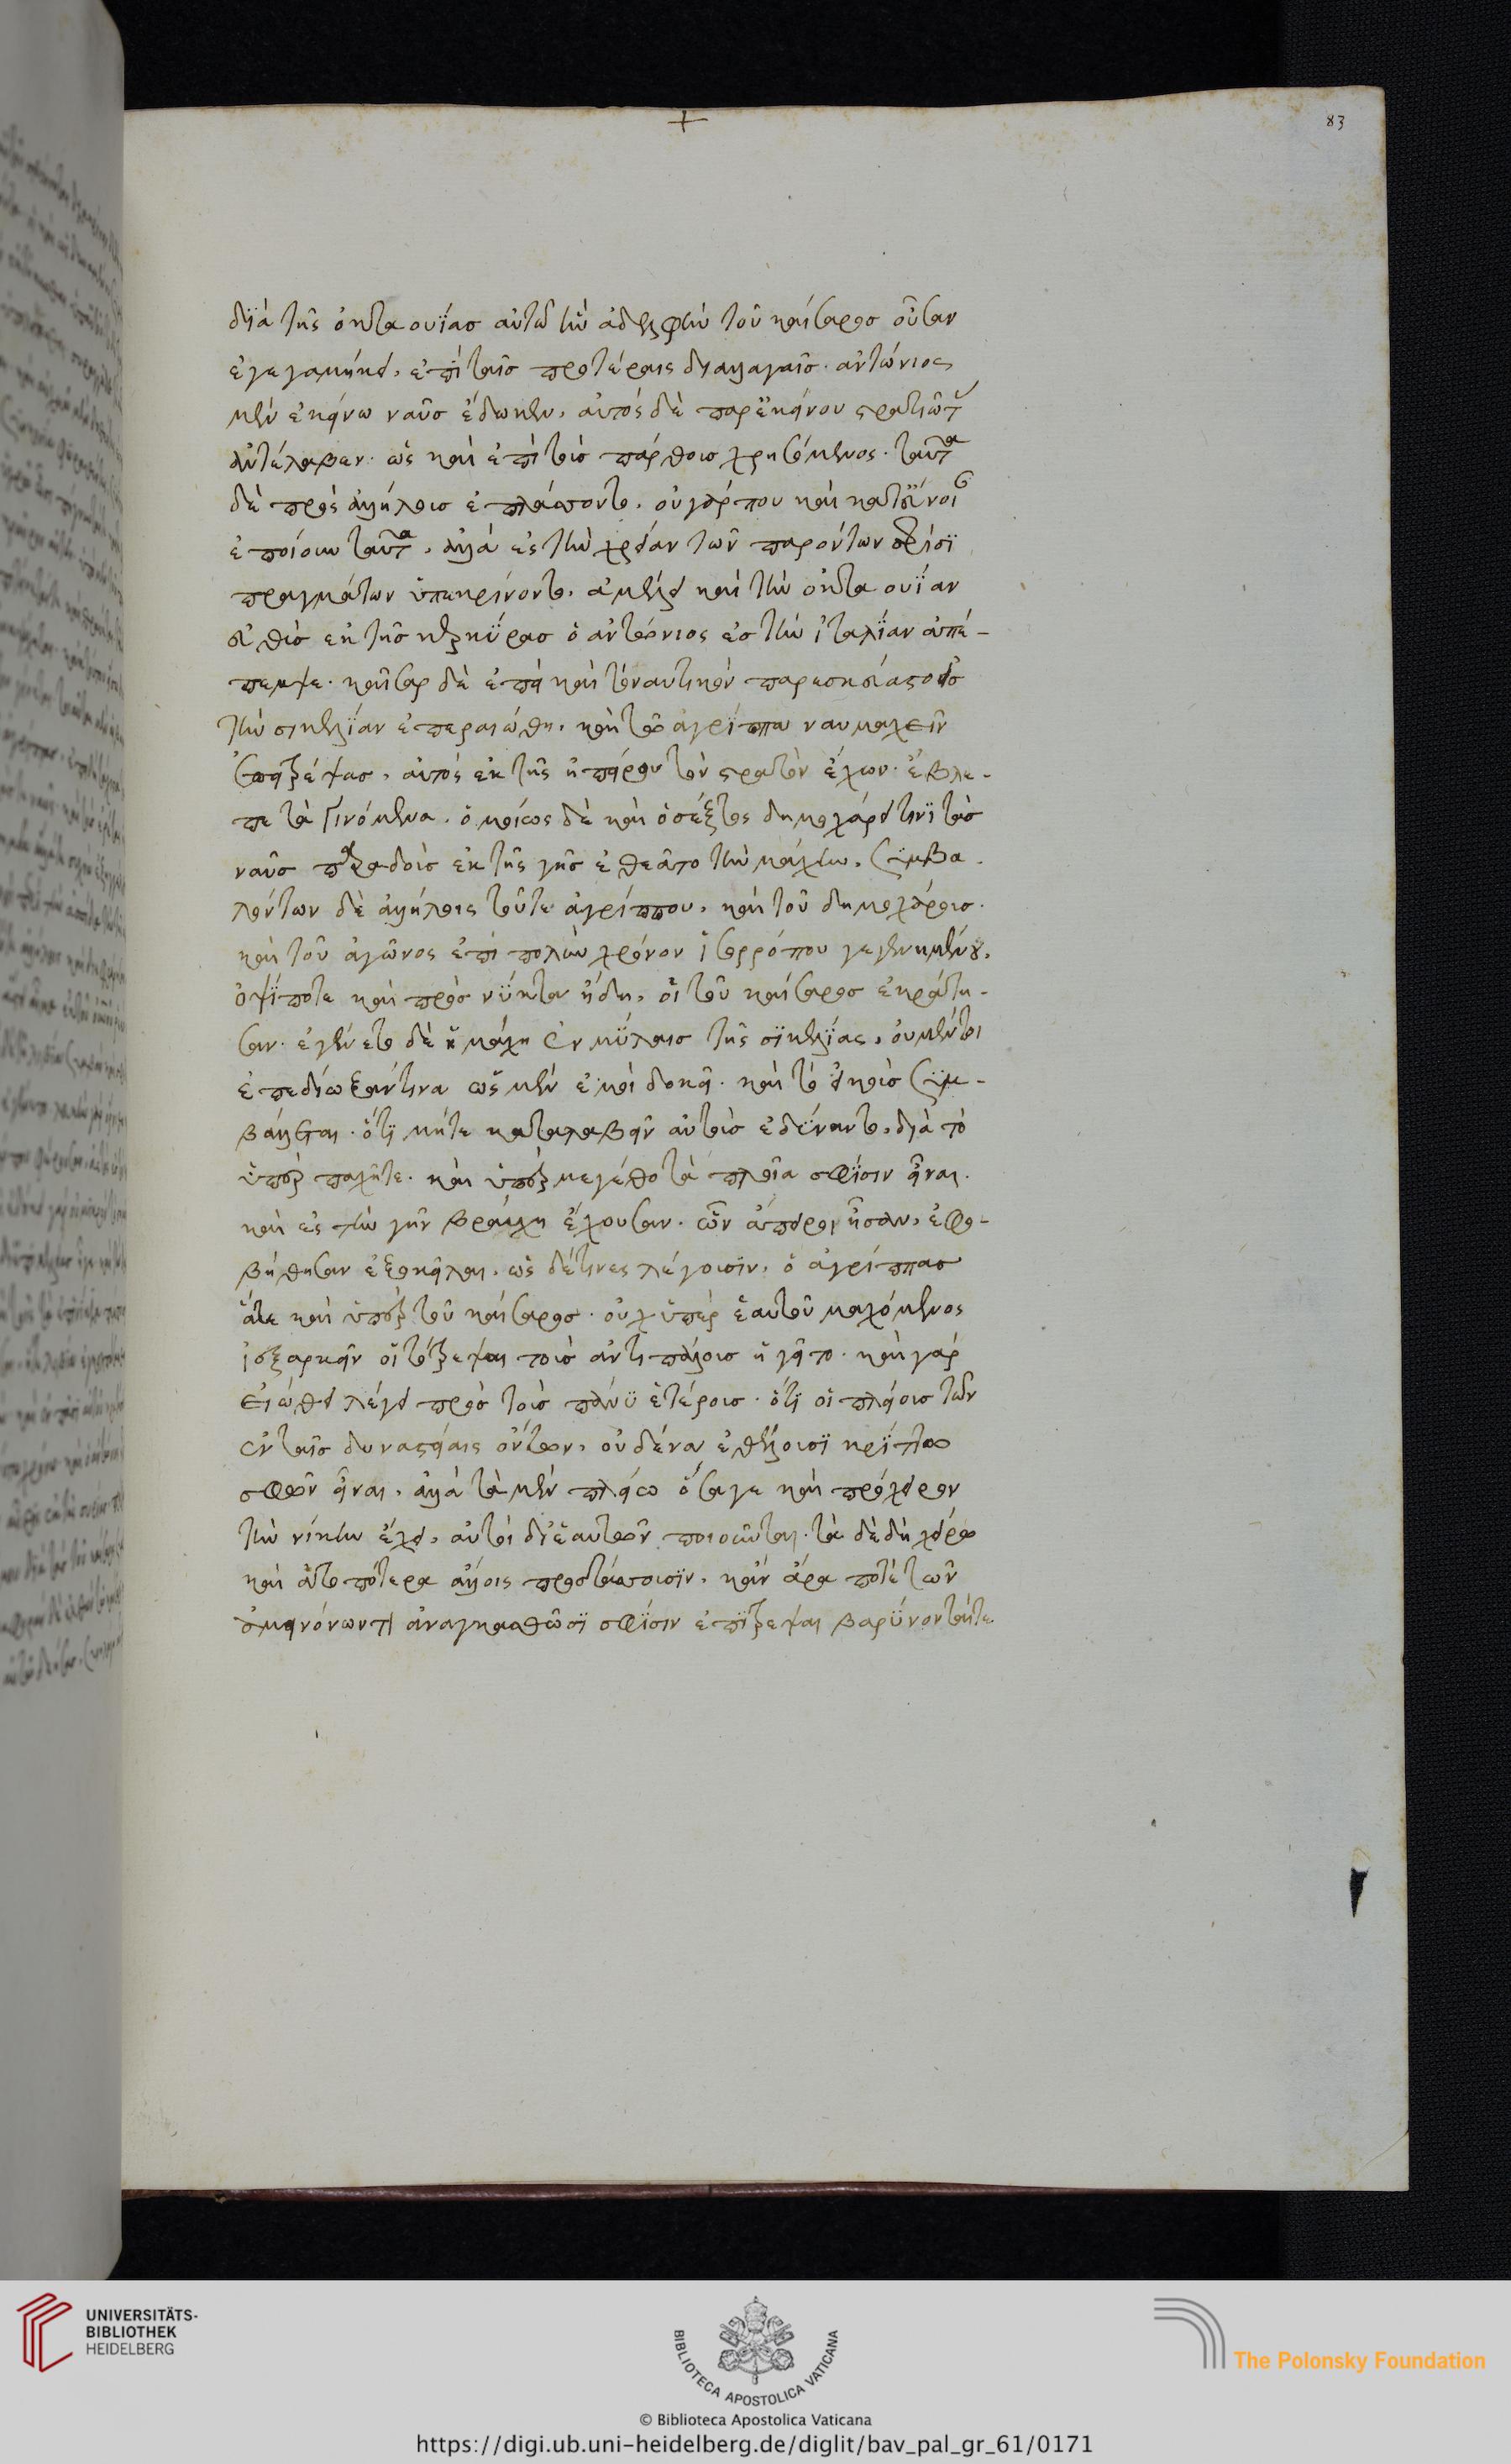 διὰ τῆς ὀκταουΐας αὐτῶ τὴν ἀδελφὴν τοῦ καίσαρος οὖσαν
ἐγεγαμήκει, ἐπὶ ταῖς προτέραις διαλλαγαῖς. ἀντώνιος
μὲν ἐκείνω ναῦς ἔδωκεν, αὐτὸς δὲ παρ' ἐκείνου στρατιώτ
ἀντέλαβεν. ὡς καὶ ἐπὶ τοὺς πάρθους χρησόμενος. ταῦτα
δὲ πρὸς ἀλλήλους ἐπλάττοντο. οὐ γάρ που καὶ
ἐποίουν ταῦτα, ἀλλὰ ἐς τὴν χρείαν τῶν παρόντων σφίσϊ
πραγμάτων ὑπεκρίνοντο. ἀμέλει καὶ τὴν ὀκταουΐαν
εὐθὺς ἐκ τῆς κερκΰρας ὁ ἀντώνιος ἐς τὴν ἰταλΐαν ἀπέ-
πεμψε. καῖσαρ δὲ ἐπεὶ καὶ τὸ ναυτικὸν παρεσκεύαστο ἐς
τὴν σικελΐαν ἐπεραιώθη. καὶ τῶ ἀγρΐππα ναυμαχεῖν
ἐπιτρέψας, αὐτὸς ἐκ τῆς ἠπείρου τὸν στρατὸν ἔχων. ἔβλε-
πε τὰ γινόμενα. ὁμοίως δὲ καὶ ὁ σέξτος δημοχάρει τινῒ τὰς
ναῦς παραδοὺς ἐκ τῆς γῆς ἐθεᾶτο τὴν μάχην. συμβα-
λόντων δὲ ἀλλήλοις τοῦτε ἀγρίππου, καὶ τοῦ δημοχάρους.
καὶ τοῦ ἀγῶνος ἐπὶ πολὺν χρόνον ἰσορρόπου γεγενημένου.
ὀψΐποτε καὶ πρὸς νΰκτα ἤδη, οἱ τοῦ καίσαρος ἐκράτη-
σαν. ἐγένετο δὲ ἡ μάχη ἐν μΰλαις τῆς σϊκελΐας, οὐ μέντοι
ἐπεδίωξάν τινα ὡς μὲν ἐμοὶ δοκεῖ. καὶ τὸ εἰκὸς συμ-
βάλλεται. ὅτϊ μήτε καταλαβεῖν αὐτοὺς ἐδΰναντο, διὰ τὸ
καὶ ὑπὲρ τὰ πλοῖα σφΐσιν εἶναι.
καὶ ἐς τὴν γῆν βράχη ἔχουσαν. ὧν ἄπειροι ἦσαν, ἐφο-
βήθησαν ἐξοκεῖλαι. ὡς δέ τινες λέγουσϊν, ὁ ἀγρίππας
ἅτε καὶ ὑπὲρ τοῦ καίσαρος. οὐχ ὑπὲρ ἑαυτοῦ μαχόμενος
ἐξαρκεῖν οἱ τὸ τρέψαι τοὺς ἀντιπάλους ἡγεῖτο. καὶ γὰρ
εἰώθει λέγει πρὸς τοὺς πάνϋ ἑτέρους. ὅτϊ οἱ πλείους τῶν
ἐν ταῖς δυναστείαις ὄντων, οὐδένα ἐθέλουσϊ κρΐττω
σφῶν εἶναι. ἀλλὰ τὰ μὲν πλείω ὅσα γε καὶ πρόχειρον
τὴν νίκην ἔχει, αὐτοὶ δι' ἑαυτῶν ποιοῦνται. τὰ δὲ δὴ χείρω
καὶ ἀτοπώτερα ἄλλοις προστάττουσϊν. κἂν ἄρα ποτὲ τῶν
ἀμεινόνων τι ἀναγκασθῶσϊ σφΐσιν ἐπϊτρέψαι βαρΰνονταίτε
83
UNIVERSITÄTS-
BIBLIOTHEK
HEIDELBERG
BIBLIOTECA APOSTOLICA VATICANA
The Polonsky Foundation
© Biblioteca Apostolica Vaticana
https://digi.ub.uni-heidelberg.de/diglit/bav_pal_gr_61/0171